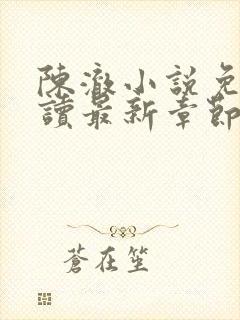 陳澈小說免
讀最新章節
蒼在笙